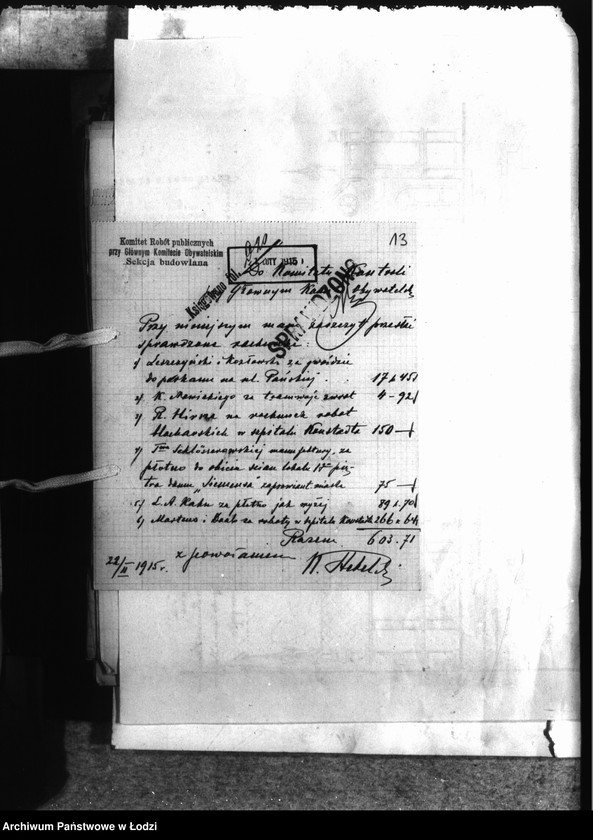 13
Komitet Robót publicznych
przy Głównym Komitecie Obywatelskim
Sekcja budowlana
LUTY 1915
Księgowano fol.
SPRAWDZONO
Do Komitetu
Głównym Kom. Obywatelsk
Przy niniejszym mam zaszczyt przesłać
sprawdzone rachunki:
1) Leszczyński i Kozłowski za gwoździe
do parkanu na ul. Pańskiej . . 17 k 45
2) K. za tramwaje zwrot 4 – 92
3) R. Hirsz na rachunek robot
blacharskich w szpitalu Konstadta 150 –
4) Tow Schlösserowskiej manufaktury, za
płótno do obicia ścian lokalu
domu „Siemensa" 75 –
5) L. A. Kahn za płótno jak wyżej 89 k 70
6) Martens i Daab za roboty w szpitalu Konstadta 266 k 64
Razem 603.71
22/II 1915 r. z poważaniem
Archiwum Państwowe w Łodzi